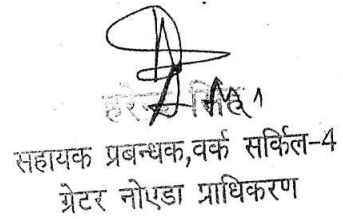 हरेन्द्र सिंह
सहायक प्रबन्धक,वर्क सर्किल-4
ग्रेटर नोएडा प्राधिकरण